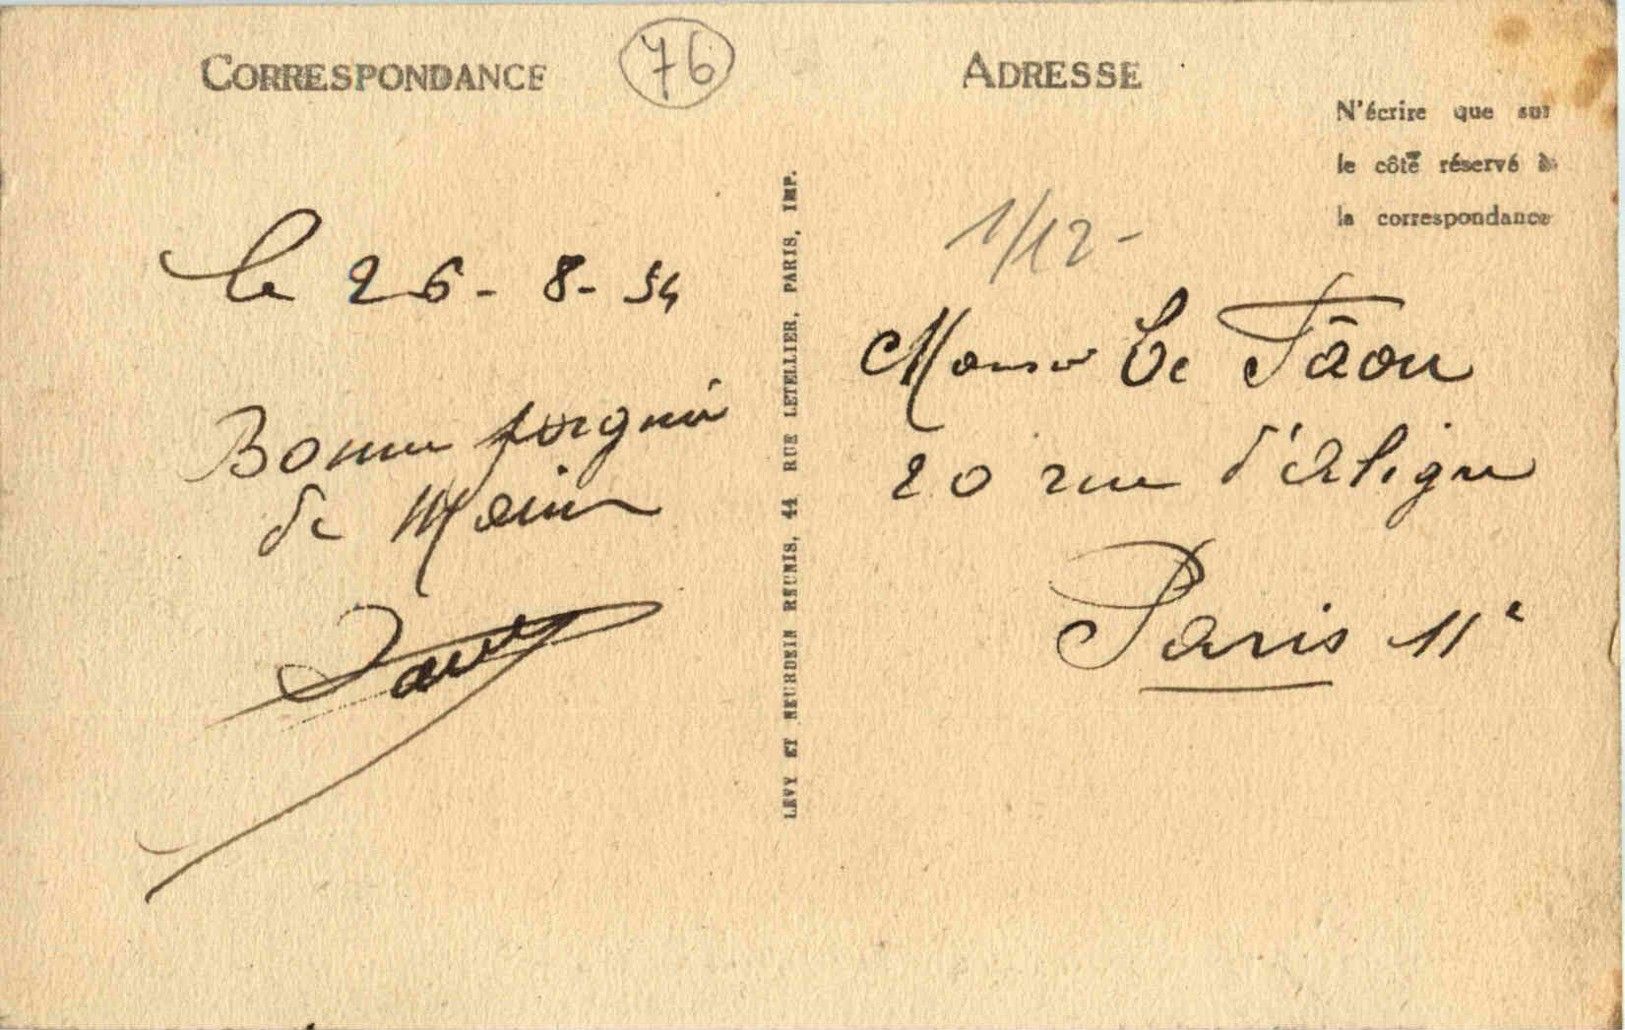 CORRESPONDANCE
76
ADRESSE
N'écrire que sur
le côté réservé à
la correspondance
1/12-
le 26-8-34
Bonne poignée
de Main
LEVY ET NEURDEIN REUNIS, 44 RUE LETELLIER, PARIS, IMP.
Le Fâou
20 rue d'Aligre
Paris 11e